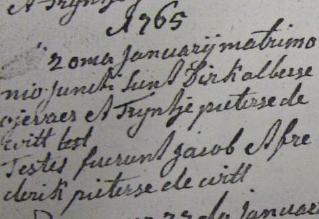 A 1765
20ma Januarij matrimo
nio juncti sunt Dirk alberse
gevaer et Tryntje pieterse de
witt
Testes fuerunt jacob et fre
derik pieterse de witt